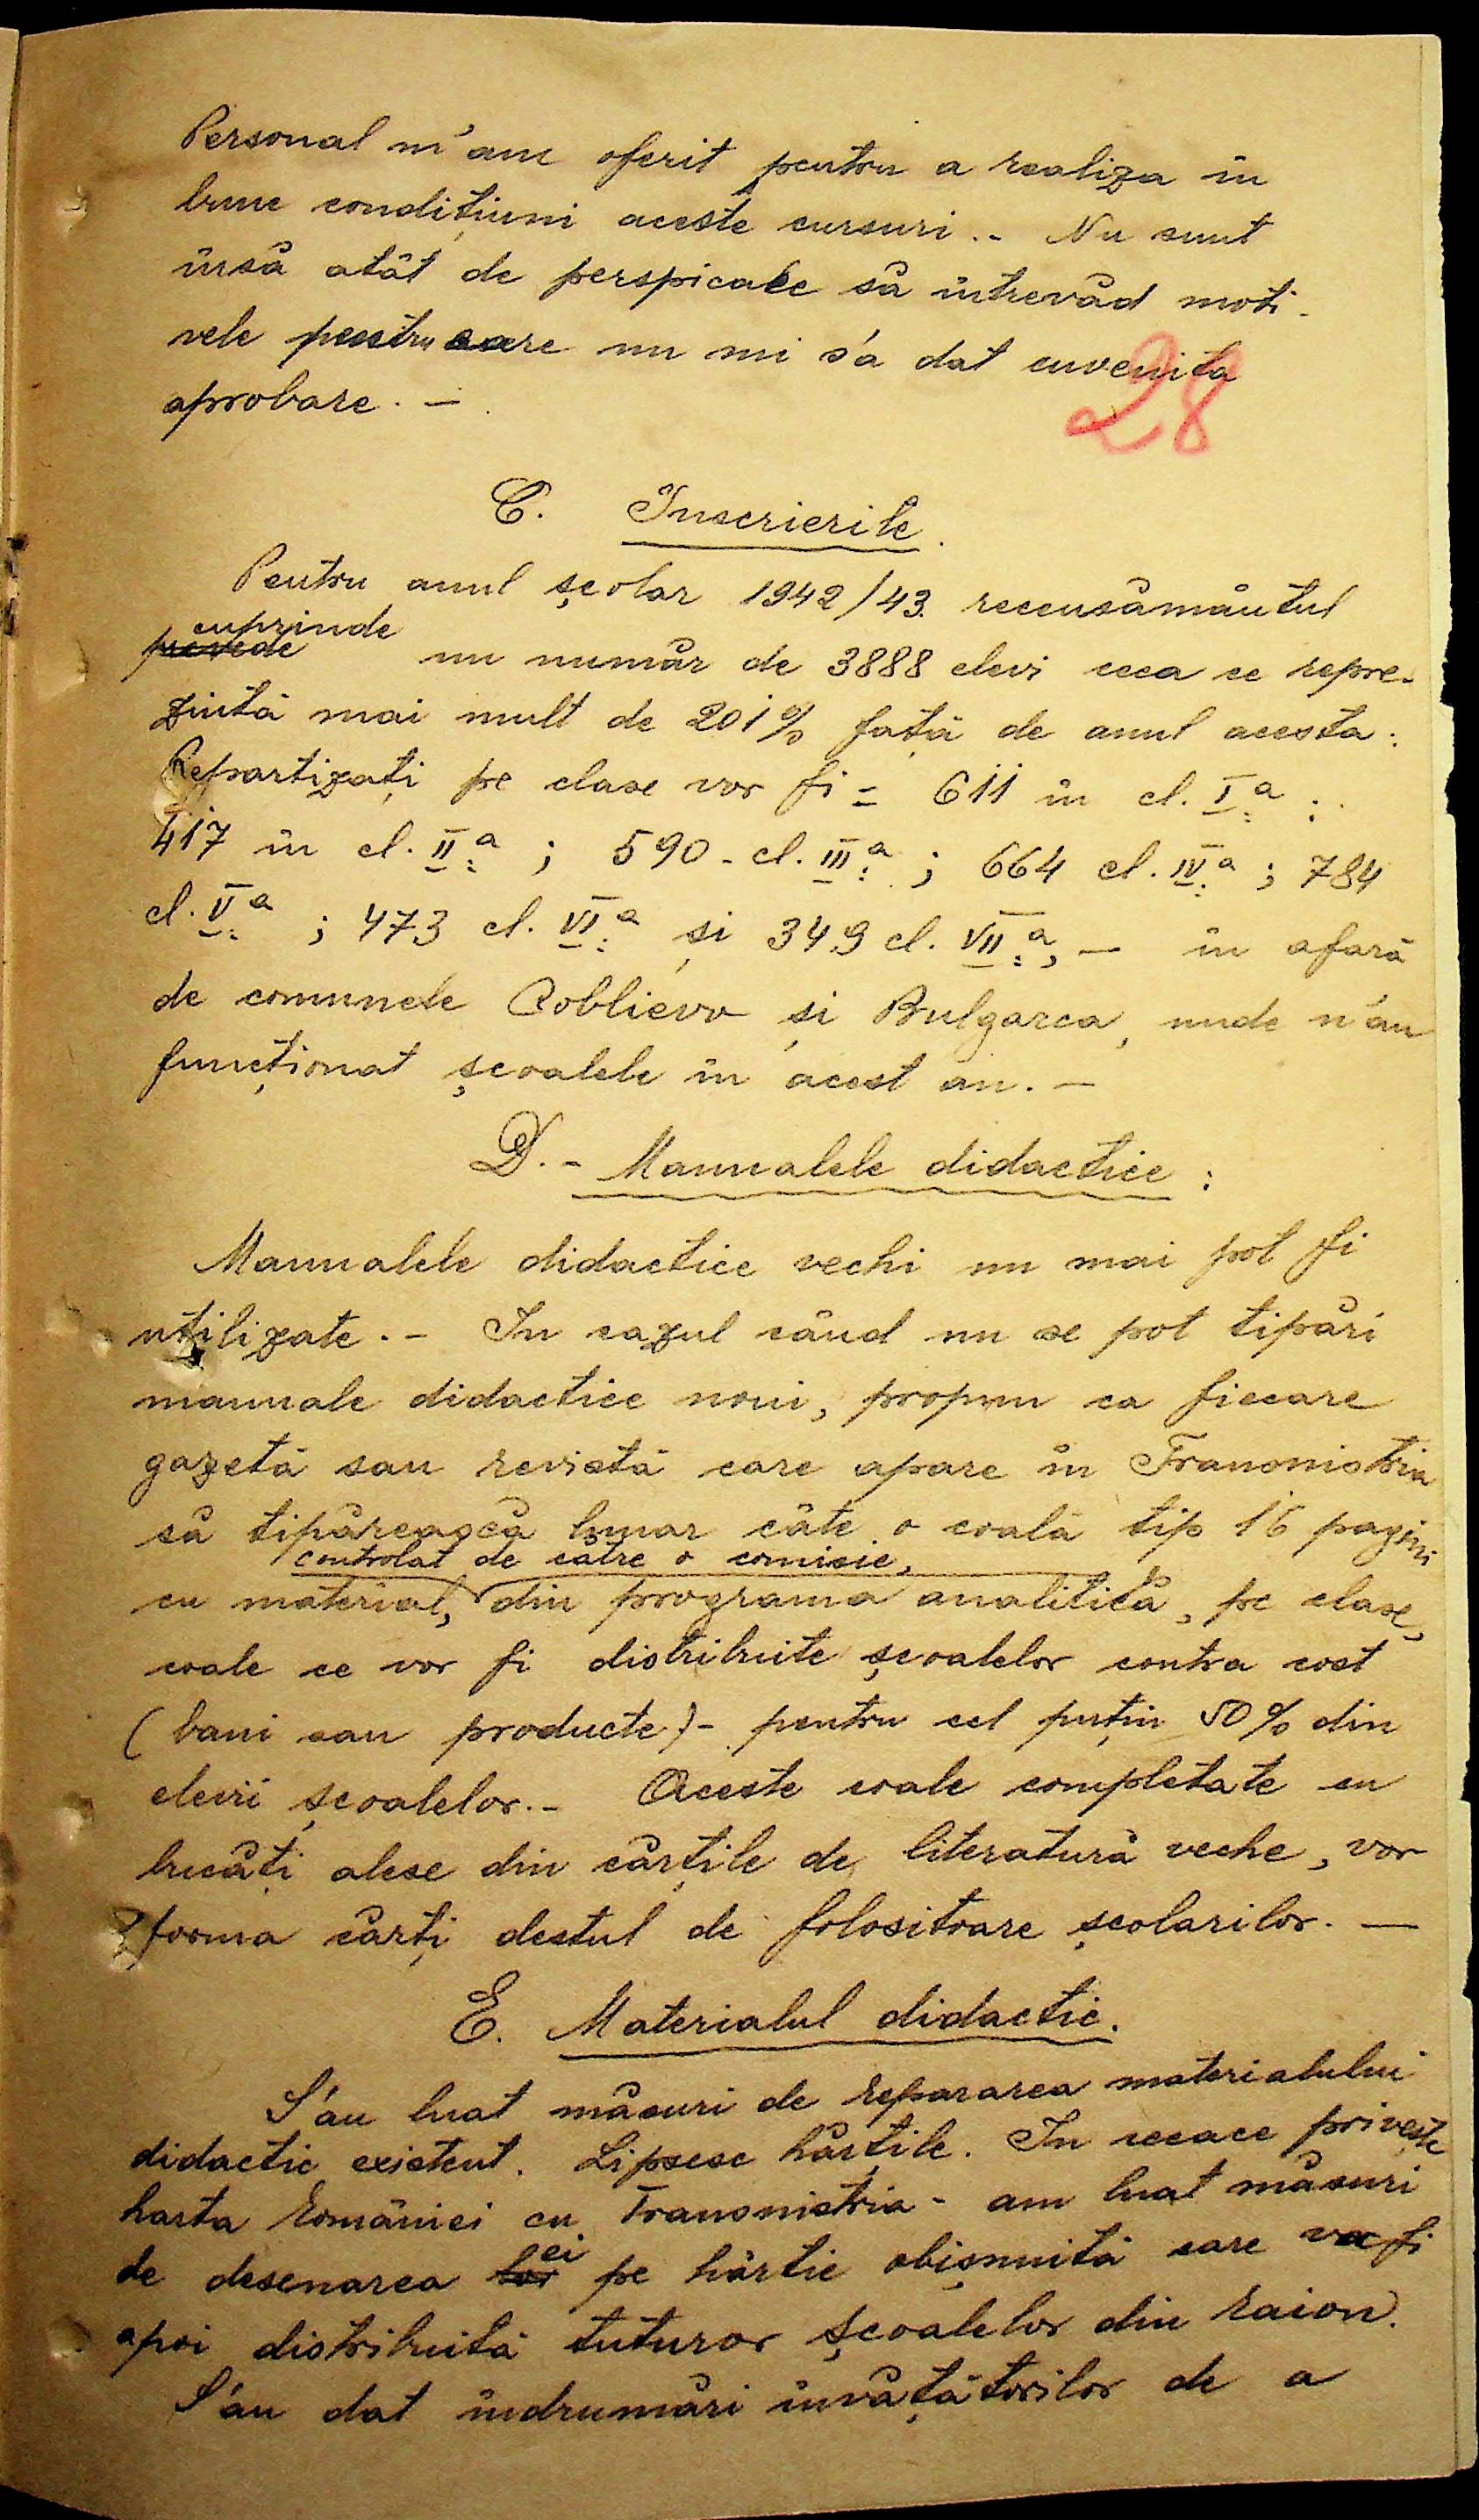 Personal m'am oferit pentru a realiza în
bune condițiuni aceste cursuri.- Nu sunt
însă atât de perspicace să întrevăd moti-
vele pentru care nu mi s'a dat cuvenita
aprobare.-
28
C. Inscrierile.
Pentru anul școlar 1942/43. recensământul
cuprinde
prevede un număr de 3888 elevi ceea ce repre-
zintă mai mult de 201% față de anul acesta.
Repartizați pe clase vor fi = 611 în cl. I.a ;
417 în cl. II.a ; 590 - cl. III.a ; 664 cl. IV.a ; 784
cl. V.a ; 473 cl. VI.a și 349 cl. VII.a, - în afară
de comunele Coblievo și Bulgarca, unde n'au
funcționat școalele în acest an.-
D.- Manualele didactice :
Manualele didactice vechi nu mai pot fi
utilizate.- In cazul când nu se pot tipări
manuale didactice noui, propun ca fiecare
gazetă sau revistă care apare în Transnistria
să tipărească lunar câte o coală tip 16 pagini
controlat de către o comisie,
cu material, din programa analitică, pe clase,
coale ce vor fi distribuite școalelor contra cost
(bani sau producte)- pentru cel puțin 50% din
elevii școalelor.- Aceste coale completate cu
bucăți alese din cărțile de literatură veche, vor
forma cărți destul de folositoare școlarilor.-
E. Materialul didactic.
S'au luat măsuri de repararea materialului
didactic existent. Lipsesc hărțile. In ceeace privește
harta României cu Transnistria - am luat măsuri
ei
de desenarea lor pe hârtie obișnuită care va fi
apoi distribuită tuturor școalelor din raion.
S'au dat îndrumări învățătorilor de a